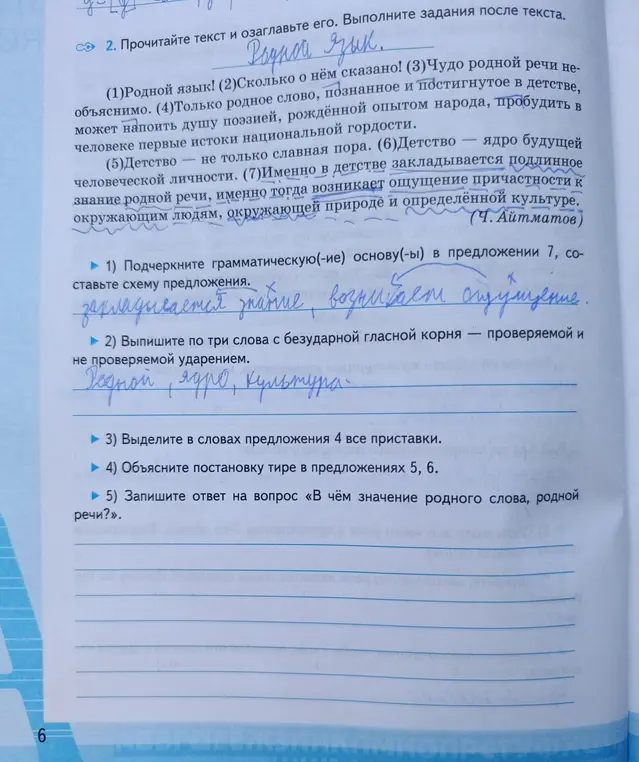 2. Прочитайте текст и озаглавьте его. Выполните задания после текста.
Родной язык.
(1)Родной язык! (2)Сколько о нём сказано! (3)Чудо родной речи не-
объяснимо. (4)Только родное слово, познанное и постигнутое в детстве,
может напоить душу поэзией, рождённой опытом народа, пробудить в
человеке первые истоки национальной гордости.
(5)Детство — не только славная пора. (6)Детство — ядро будущей
человеческой личности. (7)Именно в детстве закладывается подлинное
знание родной речи, именно тогда возникает ощущение причастности к
окружающим людям, окружающей природе и определённой культуре.
(Ч. Айтматов)
1) Подчеркните грамматическую(-ие) основу(-ы) в предложении 7, со-
ставьте схему предложения.
закладывается знание, возникает ощущение.
2) Выпишите по три слова с безударной гласной корня — проверяемой и
не проверяемой ударением.
Родной, ядро, культура.
3) Выделите в словах предложения 4 все приставки.
4) Объясните постановку тире в предложениях 5, 6.
5) Запишите ответ на вопрос «В чём значение родного слова, родной
речи?».
6